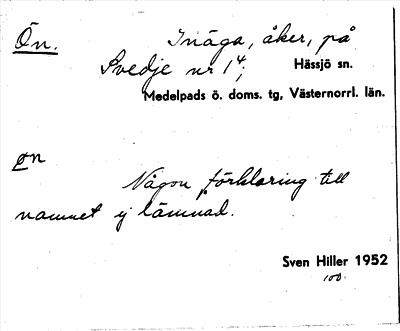 Ön. Inäga, åker, på
Svedje nr 1⁴; Hässjö sn.
Medelpads ö. doms. tg, Västernorrl. län.
øn
Någon förklaring till
namnet ej lämnad.
Sven Hiller 1952
100.